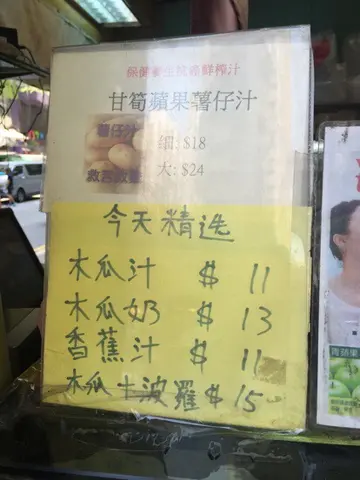 保健養生即榨鮮榨汁
甘筍蘋果薯仔汁
薯仔汁
細: $18
大: $24
今天精选
木瓜汁 $ 11
木瓜奶 $ 13
香蕉汁 $ 11
木瓜+波羅 $ 15
青蘋果